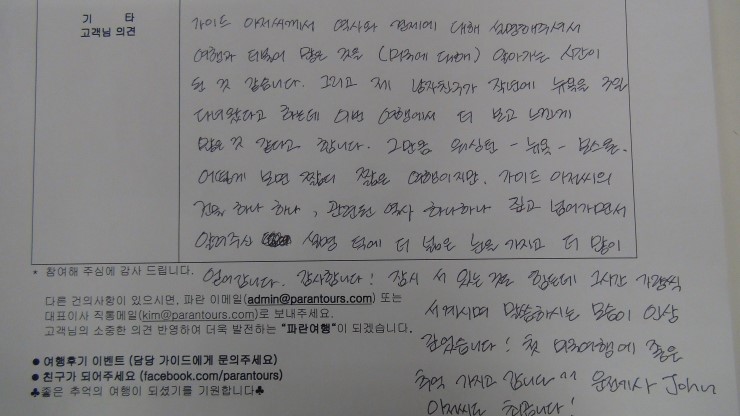 기 타
고객님 의견
가이드 아저씨께서 역사와 경제에 대해 설명해주셔서
여행과 더불어 많은 것을 (미국에 대해) 알아가는 시간이
된 것 같습니다. 그리고 제 남자친구가 작년에 뉴욕을 주일
다녀왔다고 하는데 이번 여행에서 더 보고 느낀게
많은 것 같다고 합니다. 그만큼 워싱턴 - 뉴욕 - 보스톤.
어떻게 보면 짧디 짧은 여행이지만, 가이드 아저씨의
건물 하나 하나, 관련된 역사 하나하나 짚고 넘어가면서
알려주신 설명 덕에 더 넓은 눈을 가지고 더 많이
얻어갑니다. 감사합니다! 잠시 서 있는 것을 힘든데 2시간 가량씩
서계시며 말씀하시는 모습이 인상
깊었습니다! 첫 미국여행에 좋은
추억 가지고 갑니다 ^^ 운전기사 John
아저씨도 최고입니다!
* 참여해 주심에 감사 드립니다.
다른 건의사항이 있으시면, 파란 이메일(admin@parantours.com) 또는
대표이사 직통메일(kim@parantours.com)로 보내주세요.
고객님의 소중한 의견 반영하여 더욱 발전하는 "파란여행"이 되겠습니다.
● 여행후기 이벤트 (담당 가이드에게 문의주세요)
● 친구가 되어주세요 (facebook.com/parantours)
♣좋은 추억의 여행이 되셨기를 기원합니다♣